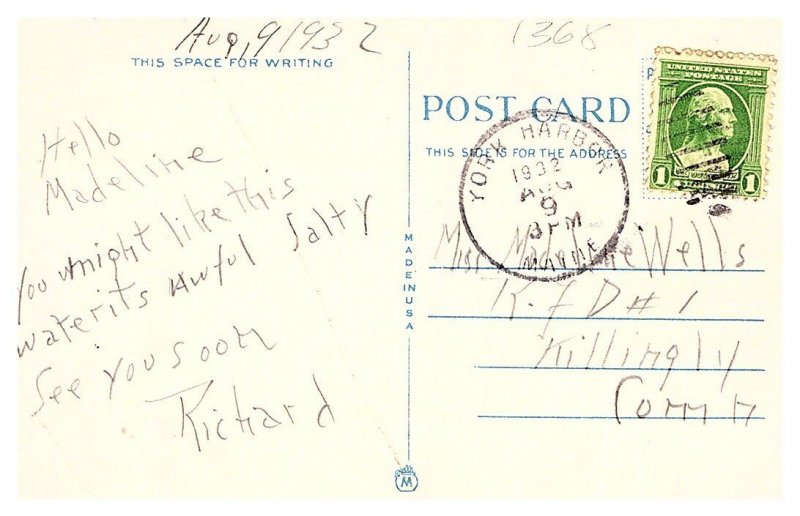 Aug, 9 1932
1368
THIS SPACE FOR WRITING
Hello
Madeline
You might like this
water its awful salty
See you soon
Richard
POST CARD
THIS SIDE IS FOR THE ADDRESS
UNITED STATES
POSTAGE
1 1
YORK HARBOR
1932
AUG
9
3 PM
MAINE
MADE IN USA
Miss Madeline Wells
R. F D # 1
Killingly
Conn
M